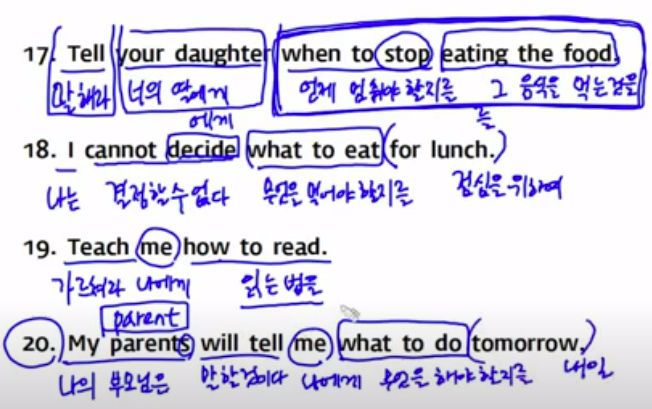 17. Tell your daughter when to stop eating the food.
말해라 너의 딸에게 언제 멈춰야 할지를 그 음식을 먹는것을
에게 를
18. I cannot decide what to eat for lunch.
나는 결정할 수 없다 무엇을 먹어야 할지를 점심을 위하여
19. Teach me how to read.
가르쳐라 나에게 읽는 법을
parent
20. My parents will tell me what to do tomorrow.
나의 부모님은 말할 것이다 나에게 무엇을 해야 할지를 내일